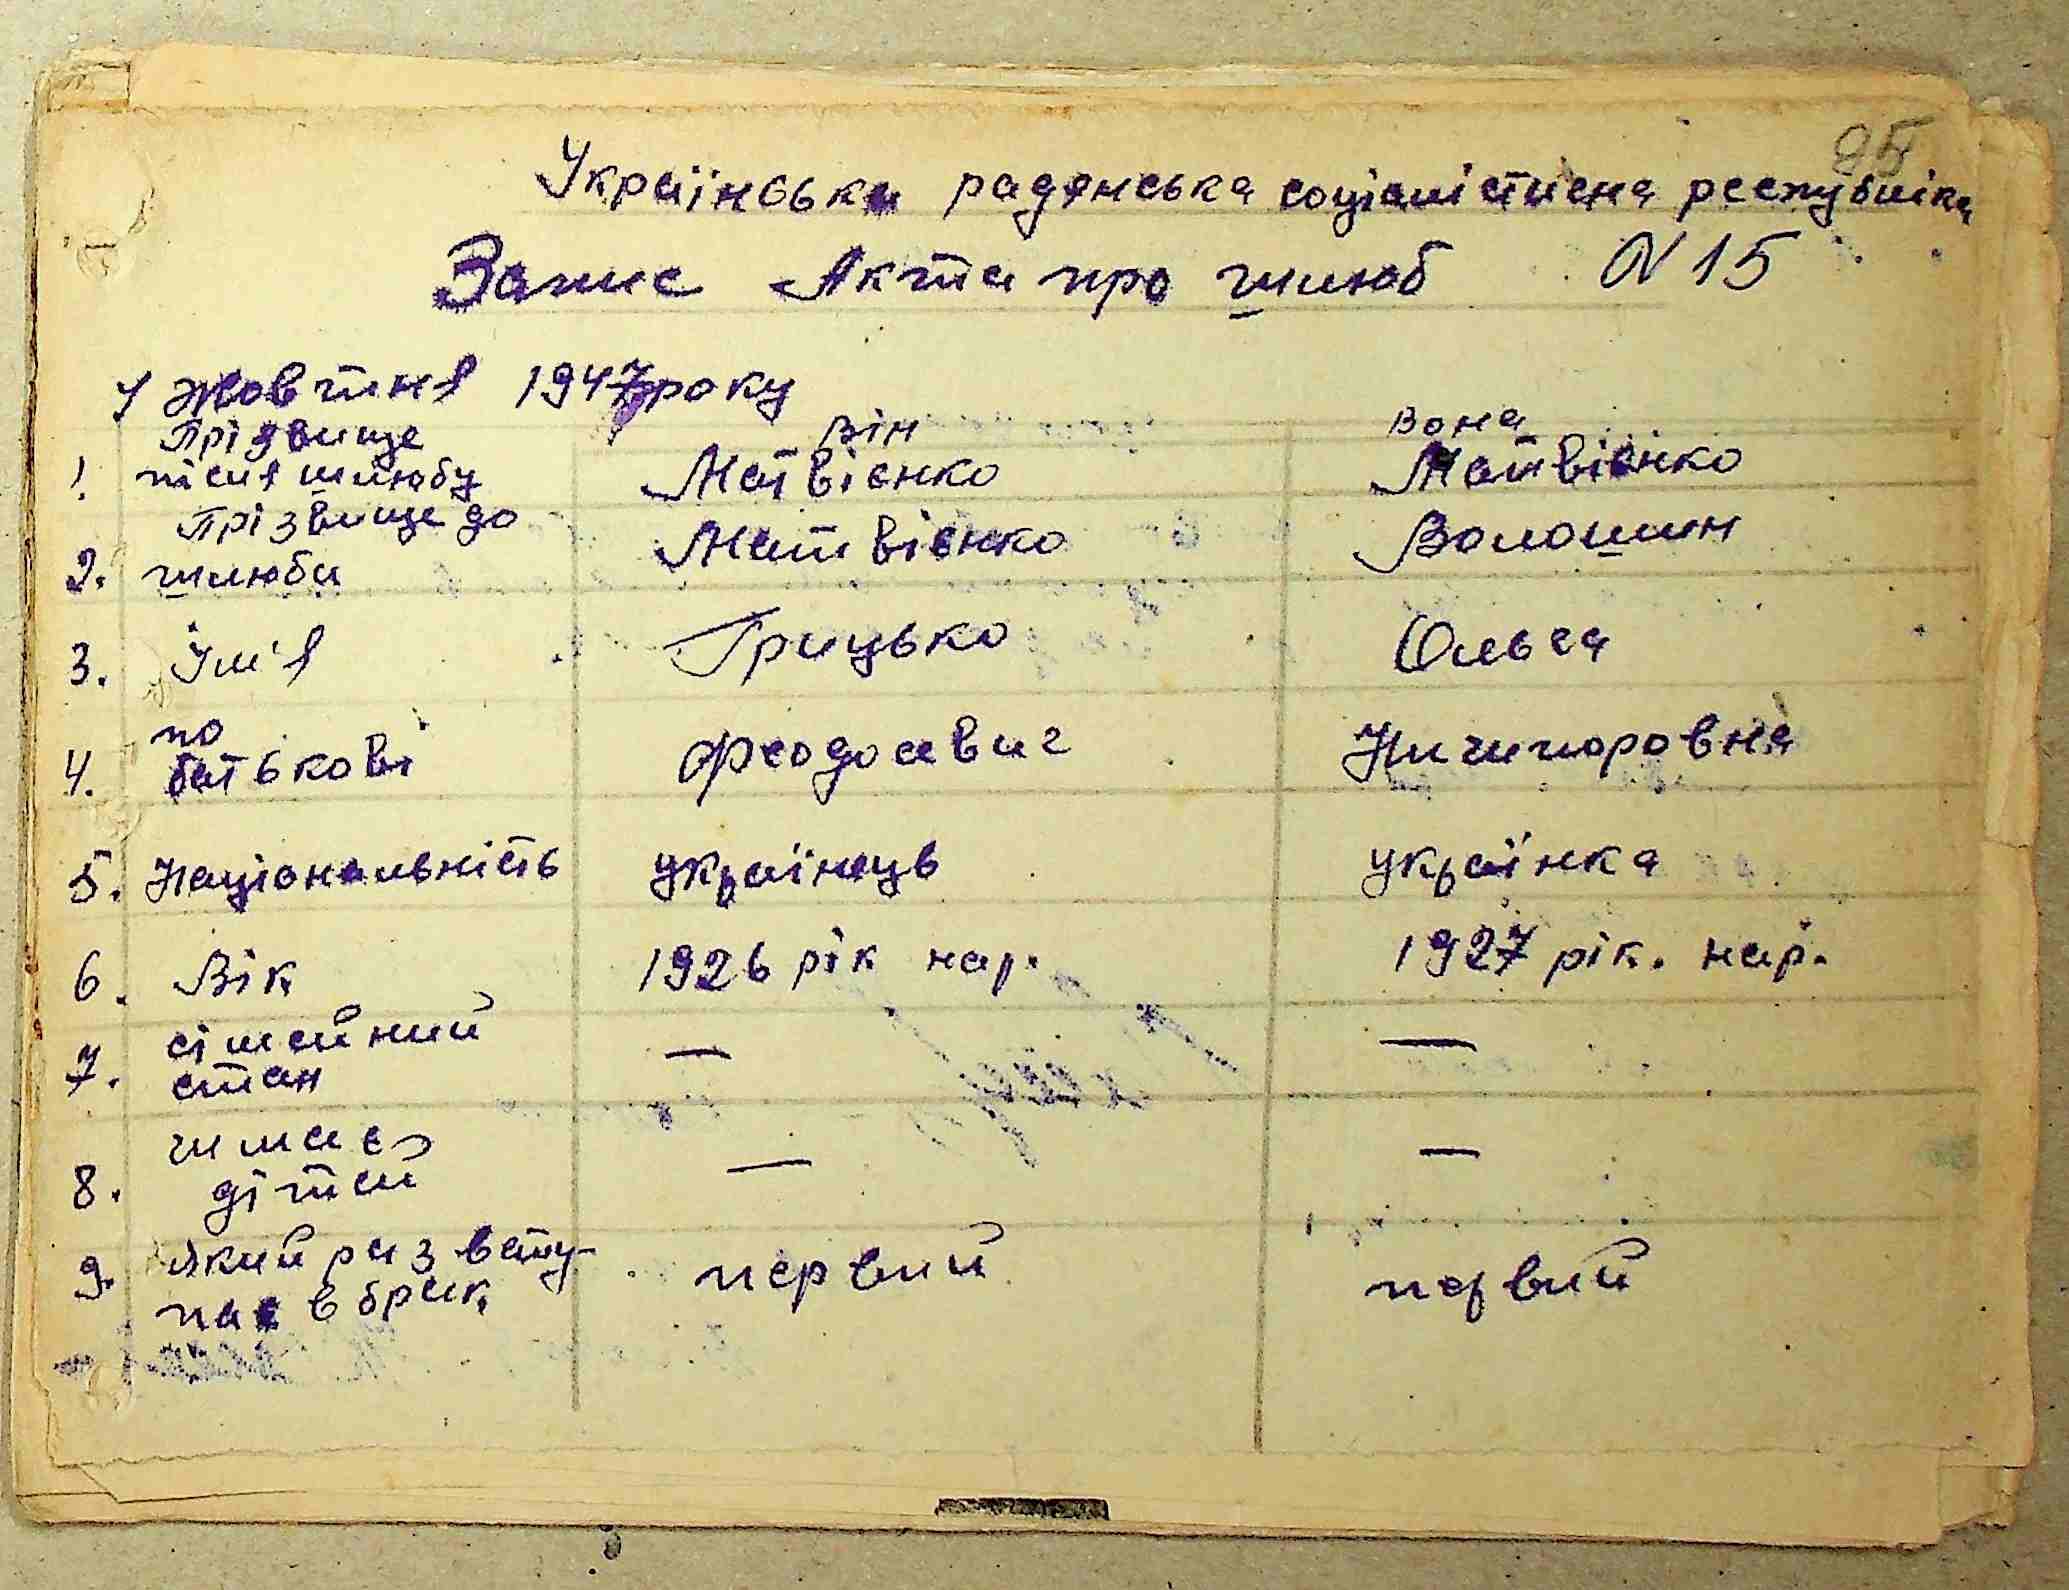 95
Українська радянська соціалістична республіка
Запис Акта про шлюб N 15
4 Жовтня 1947 року
він вона
1. Прізвище після шлюбу Матвієнко Матвієнко
2. Прізвище до шлюбу Матвієнко Волошин
3. Ім'я Грицько Ольга
4. по батькові Феодосевич Ничипоровна
5. Національність українець українка
6. Вік 1926 рік нар. 1927 рік. нар.
7. сімейний стан — —
8. чи має дітей — —
9. який раз вступає в брак первий первий